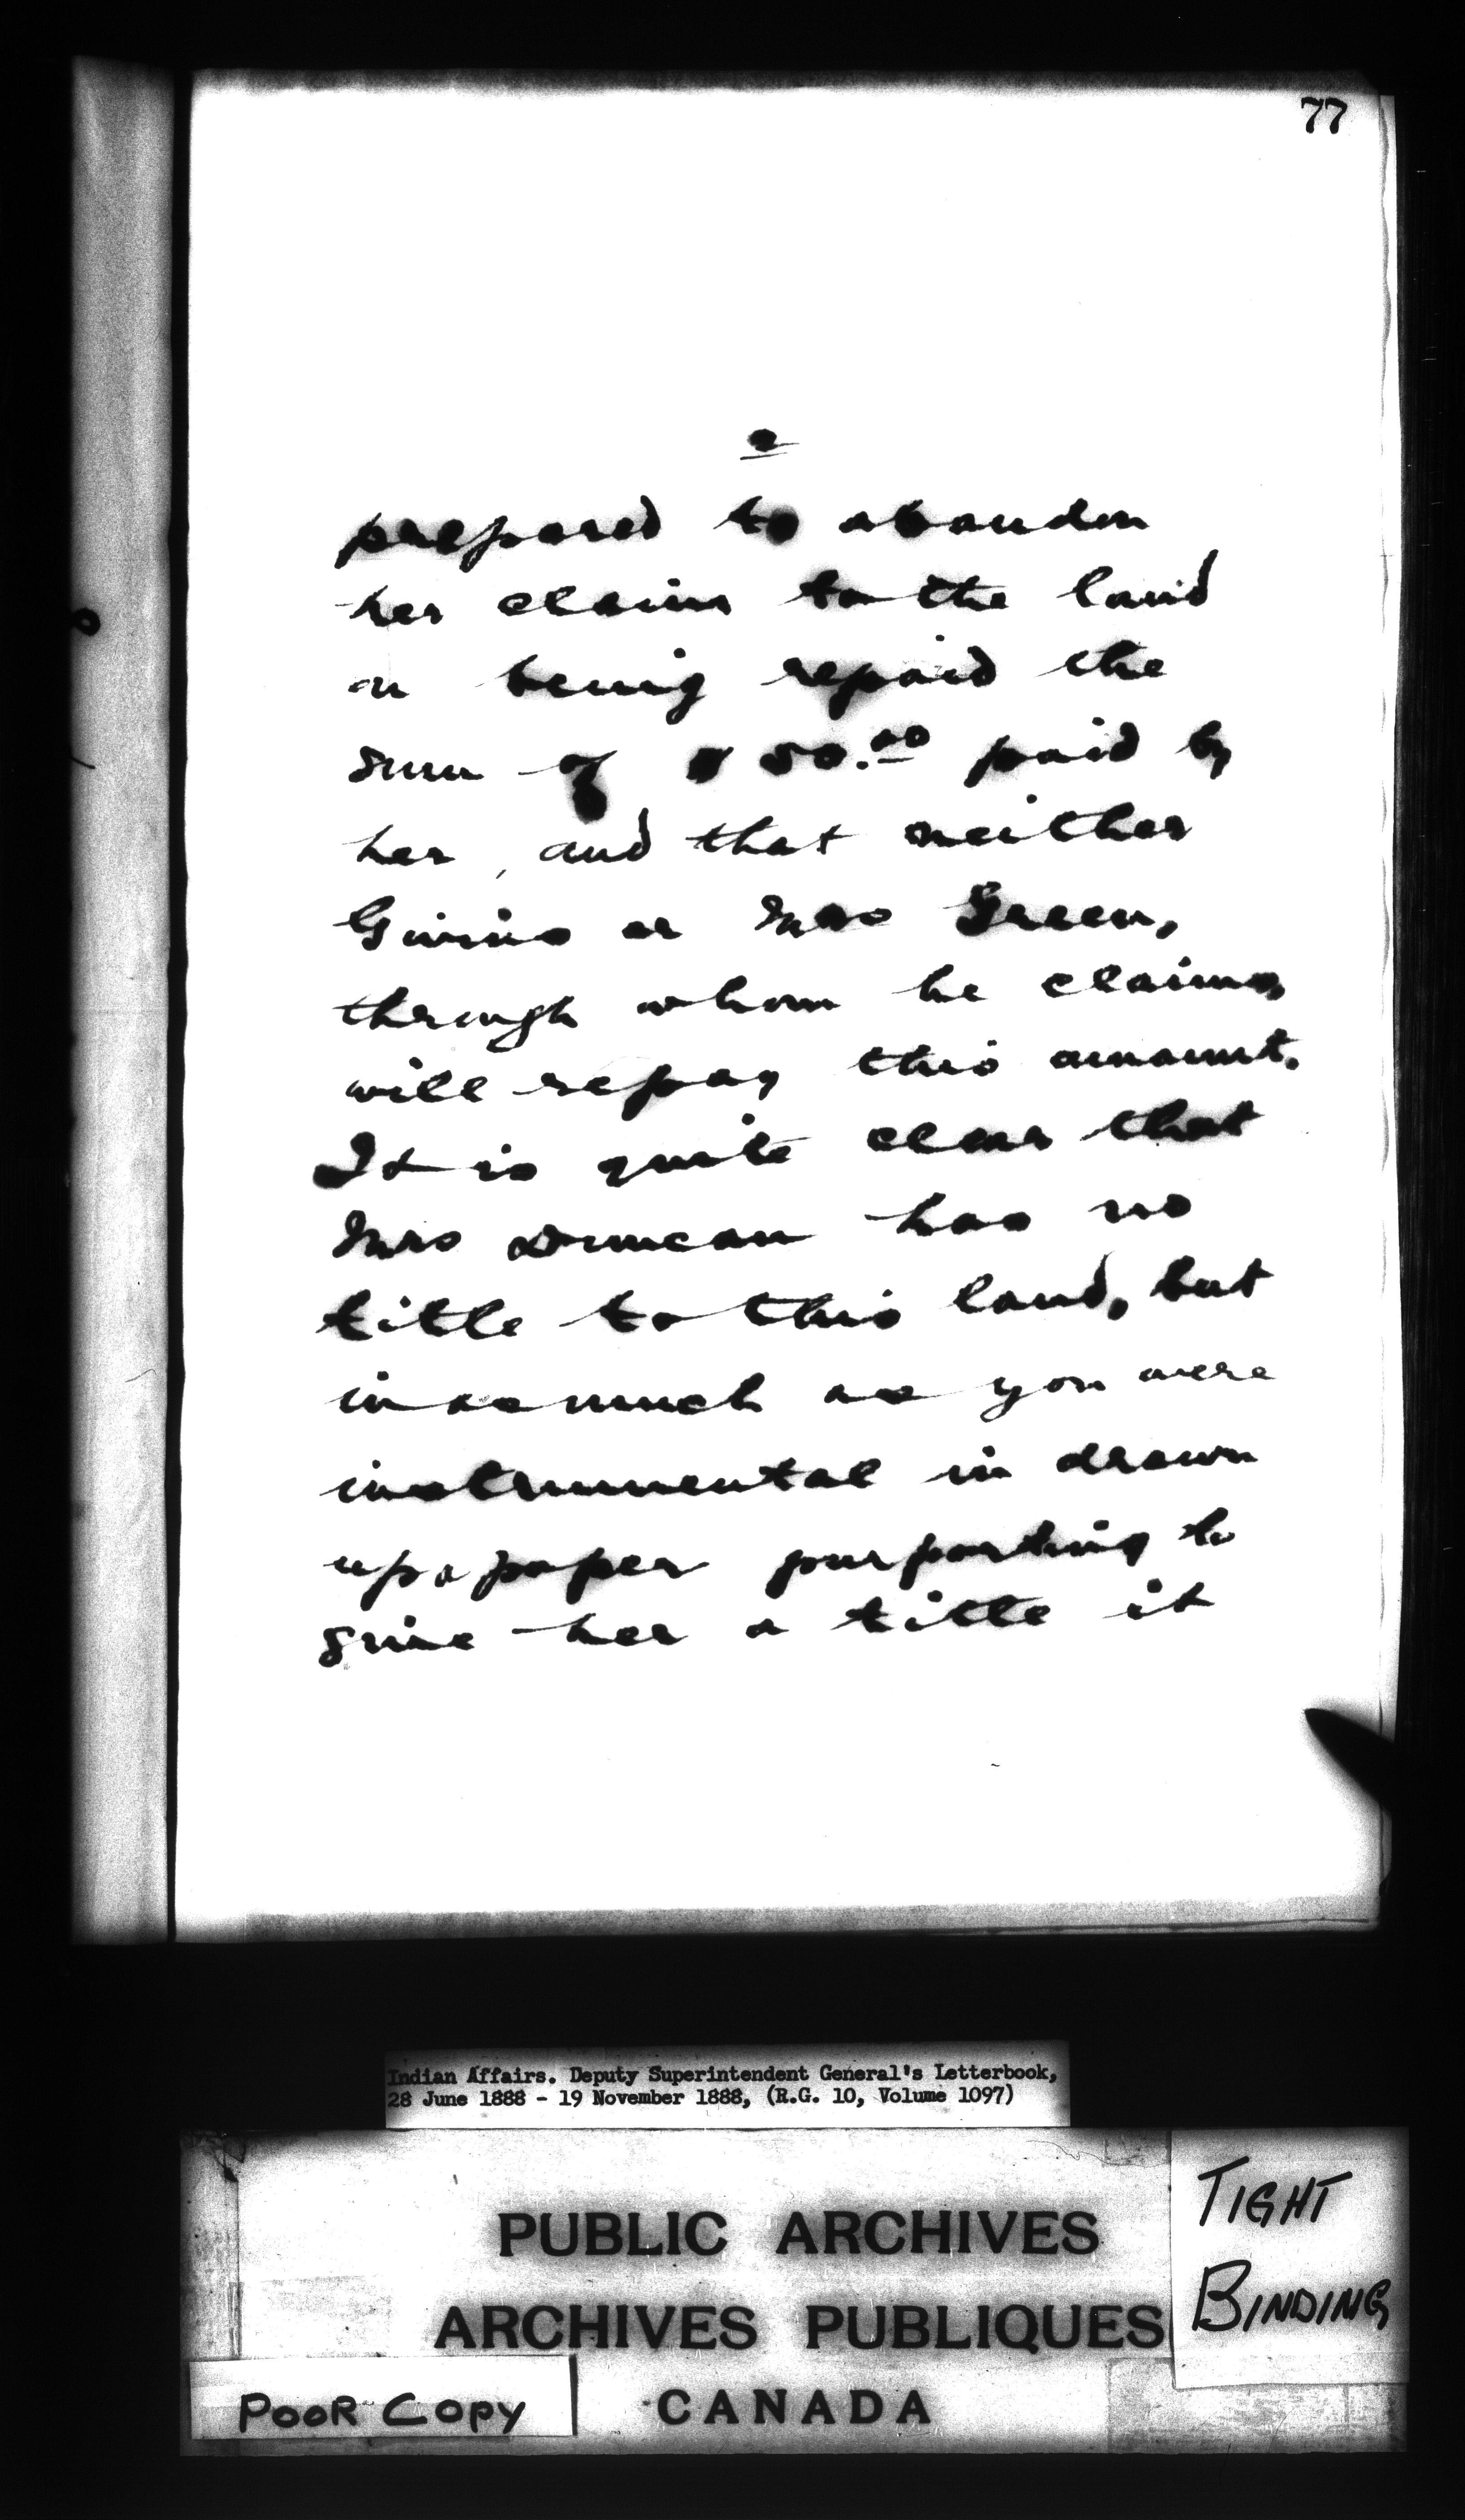 77
2
prepared to abandon
her claim to the land
on being repaid the
sum of $50.00 paid by
her, and that neither
Givins or Mrs Green,
through whom he claims,
will repay this amount.
It is quite clear that
Mrs Duncan has no
title to this land, but
in as much as you were
instrumental in drawn
up a paper purporting to
give her a title it
Indian Affairs. Deputy Superintendent General's Letterbook,
28 June 1888 - 19 November 1888, (R.G. 10, Volume 1097)
PUBLIC ARCHIVES
ARCHIVES PUBLIQUES
CANADA
TIGHT
BINDING
POOR COPY